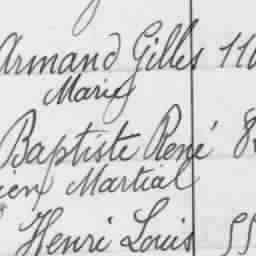 Armand Gilles 110
Marie
Baptiste René 8
ien Martial
Henri Louis 55